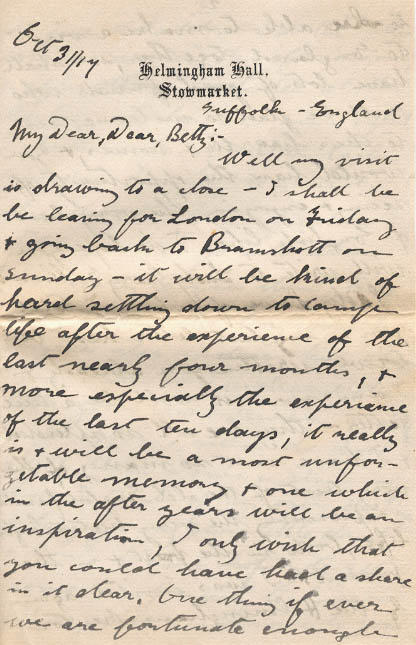 Oct 31/17
Helmingham Hall,
Stowmarket.
Suffolk - England
My Dear, Dear, Betty:-
Well my visit
is drawing to a close - I shall be
be leaving for London on Friday
+ going back to Bramshott on
Sunday - it will be kind of
hard settling down to camp
life after the experience of the
last nearly four months, +
more especially the experience
of the last ten days, it really
is + will be a most unfor-
getable memory + one which
in the after years will be an
inspiration, I only wish that
you could have had a share
in it dear. One thing if ever
we are fortunate enough